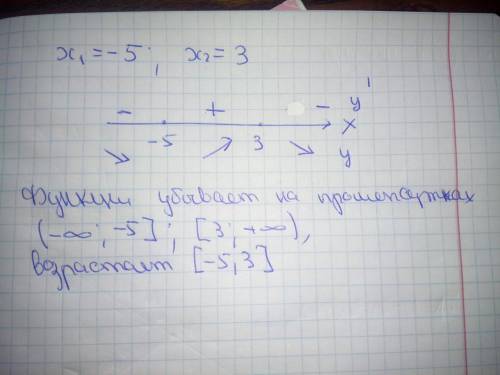 x₁ = -5; x₂ = 3
- + - y'
-5 3 x
y
Функция убывает на промежутках
(-∞; -5]; [3; +∞),
возрастает [-5; 3]